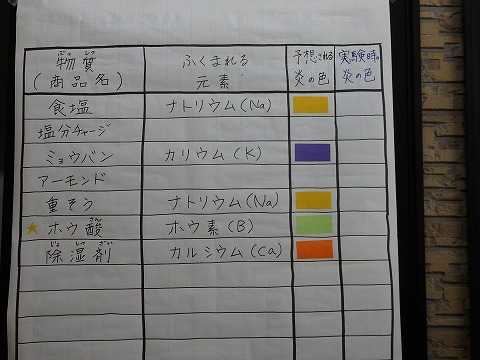 物質 ふくまれる 予想される 実験時の
(商品名) 元素 炎の色 炎の色
食塩 ナトリウム(Na)
塩分チャージ
ミョウバン カリウム(K)
アーモンド
重そう ナトリウム(Na)
★ホウ酸 ホウ素(B)
除湿剤 カルシウム(Ca)